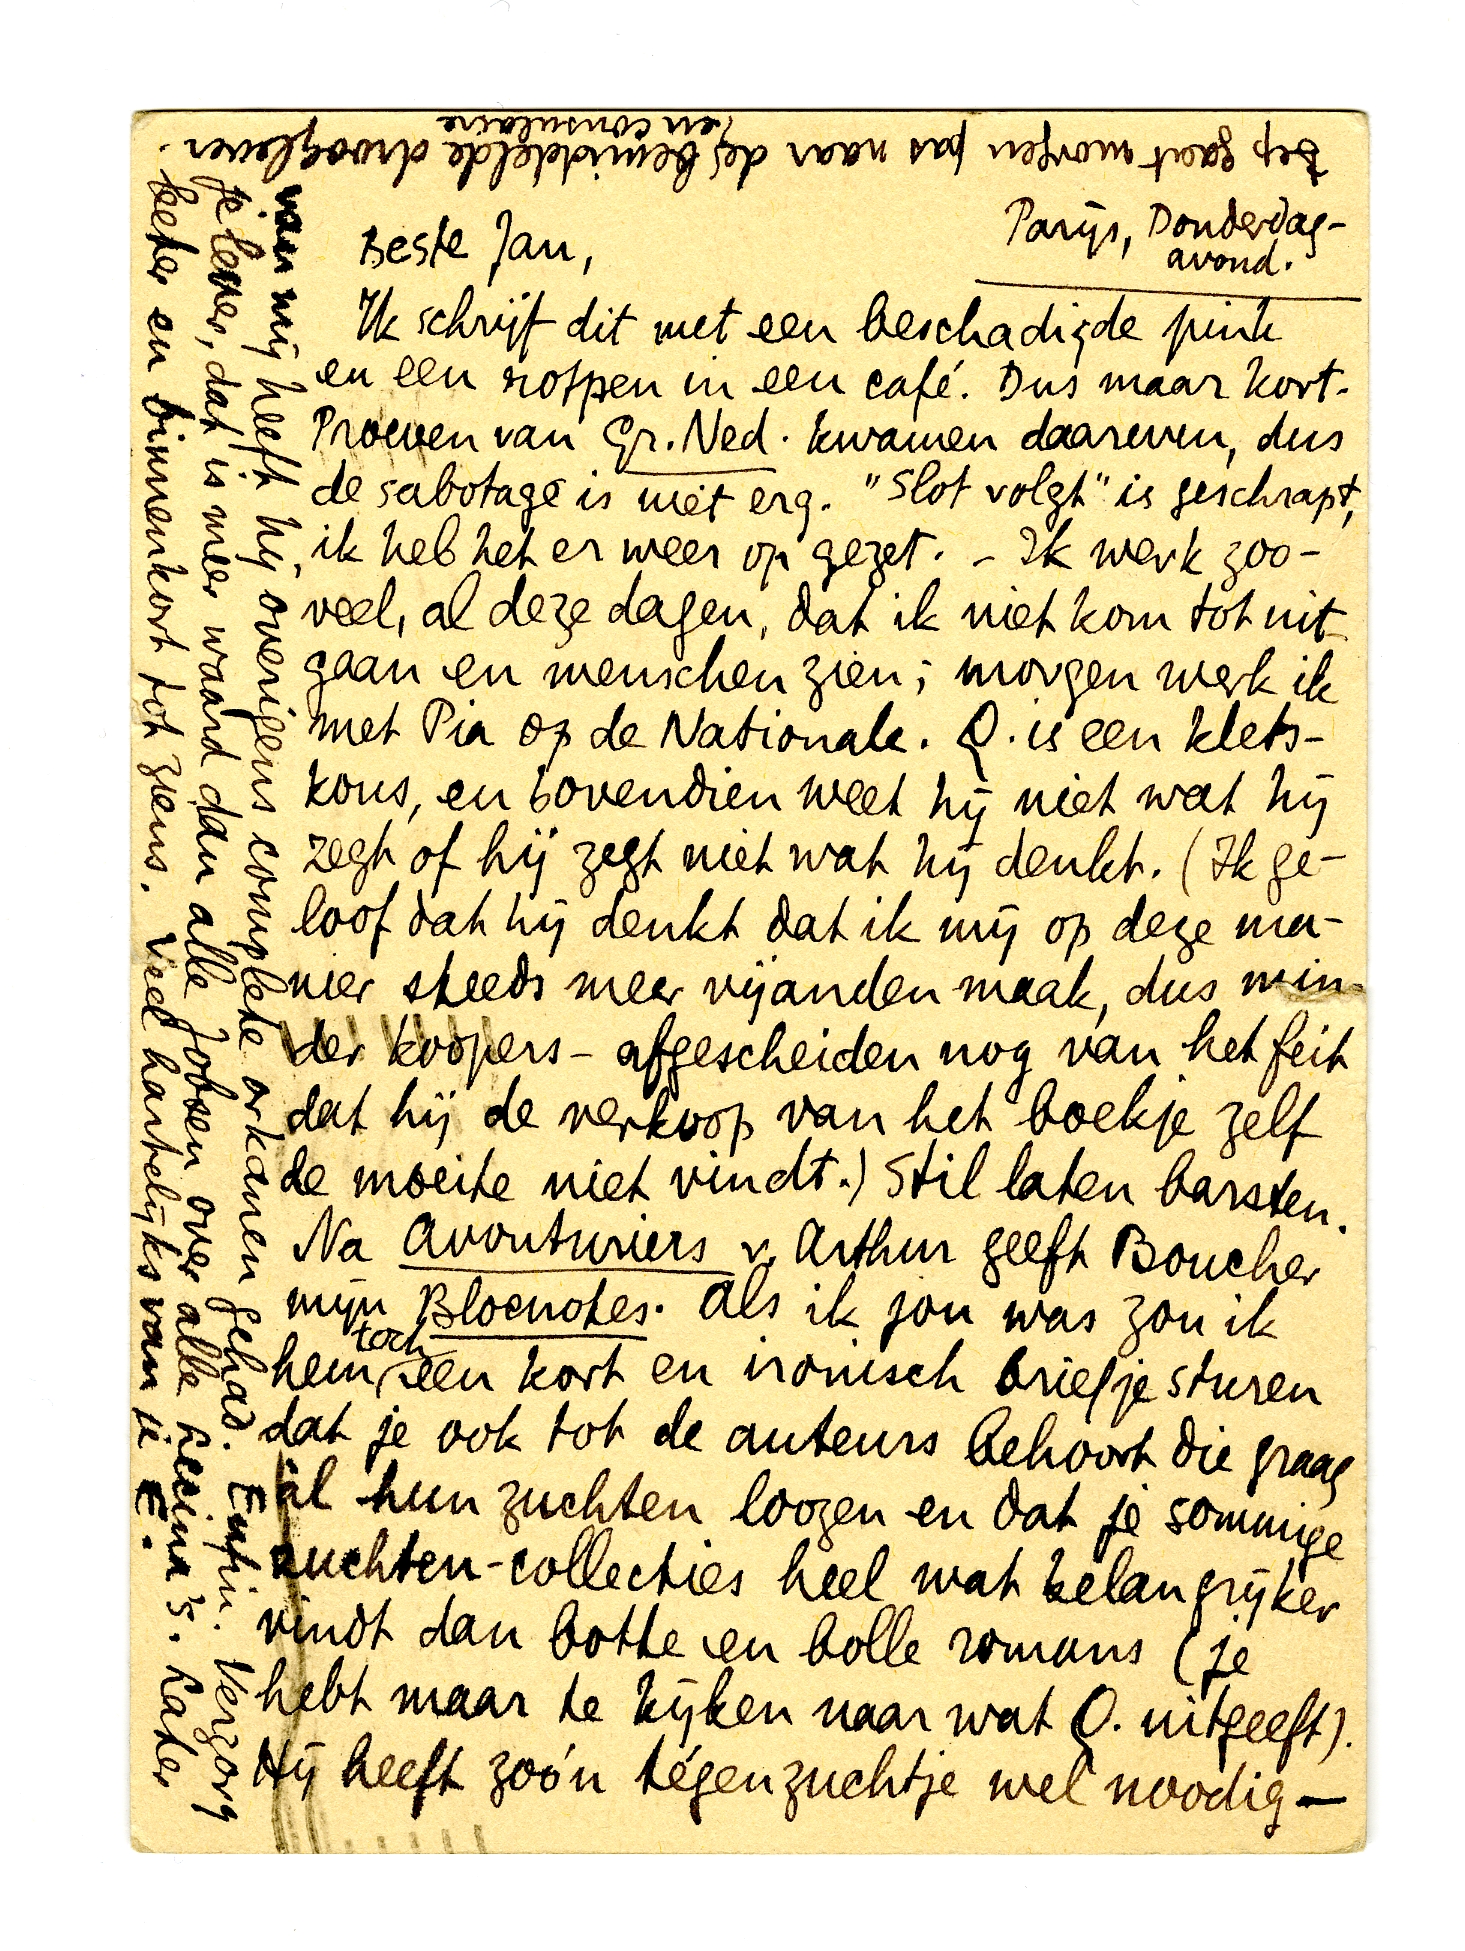 Parijs, Donderdag-
avond.
Beste Jan,
Ik schrijf dit met een beschadigde pink
en een rotpen in een café. Dus maar kort.
Proeven van Gr. Ned. kwamen daareven, dus
de sabotage is niet erg. "Slot volgt" is geschrapt,
ik heb het er weer op gezet. - Ik werk zoo-
veel, al deze dagen, dat ik niet kom tot uit-
gaan en menschen zien; morgen werk ik
met Pia op de Nationale. Q. is een klets-
kous, en bovendien weet hij niet wat hij
zegt of hij zegt niet wat hij denkt. (Ik ge-
loof dat hij denkt dat ik mij op deze ma-
nier steeds meer vijanden maak, dus min-
der koopers - afgescheiden nog van het feit
dat hij de verkoop van het boekje zelf
de moeite niet vindt.) Stil laten barsten.
Na Avonturiers v. Arthur geeft Boucher
mijn Blocnotes. Als ik jou was zou ik
hem toch een kort en ironisch briefje sturen
dat je ook tot de auteurs behoort die graag
al hun zuchten loozen en dat je sommige
zuchten-collecties heel wat belangrijker
vindt dan botte en bolle romans (je
hebt maar te kijken naar wat Q. uitgeeft).
Hij heeft zoo'n tégenzuchtje wel noodig —
van mij heeft hij overigens complete orkanen gehad. Enfin. Verzorg
je lever, dat is meer waard dan alle Jobsen over alle Lecina's. Later
beter en binnenkort tot ziens. Veel hartelijks van je E.
Bep gaat morgen pas naar de bemiddelde drooglever.
en consulaire